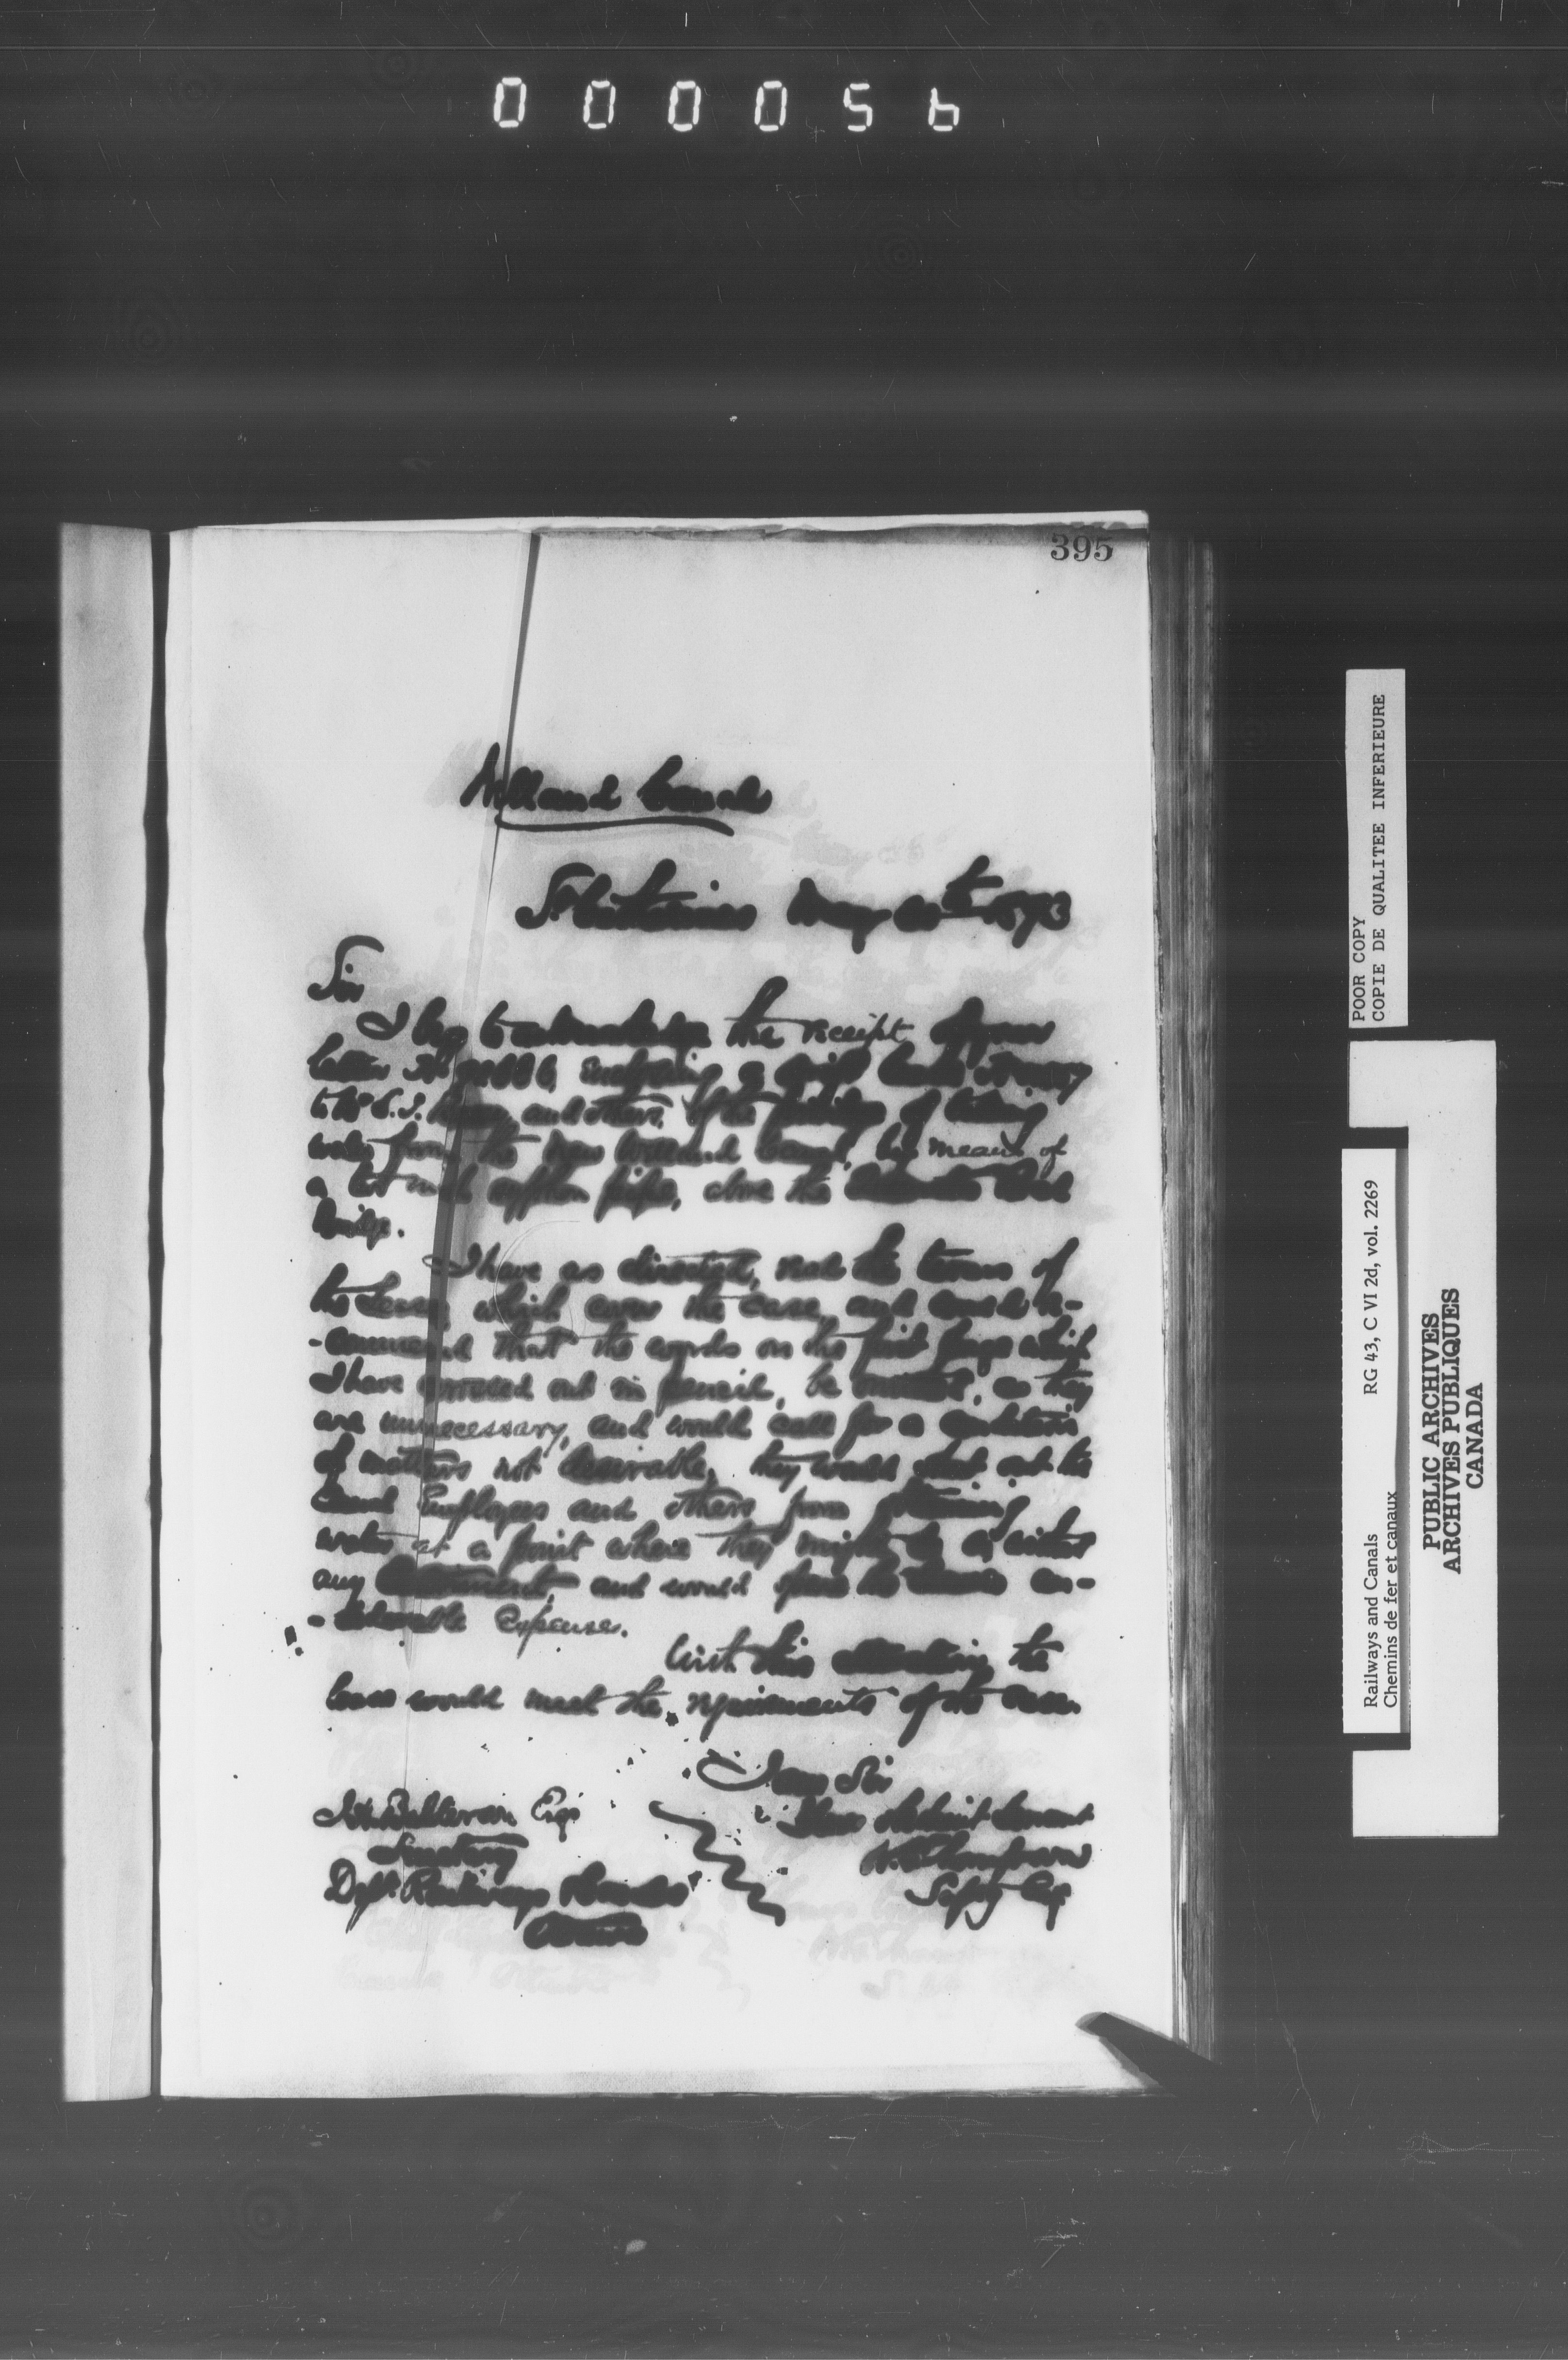 000056
395
Welland Canals
St Catharines May 1893
Sir
I beg to acknowledge the receipt of your
letter No enclosing a draft
to Mr and others, of the privilege of taking
water from the New Welland Canal, by means of
a inch syphon pipe, above the
Bridge.
I have as directed, read the terms of
the Lease, which cover the case, and would re-
-commend that the words on the first page which
I have crossed out in pencil, be omitted, as they
are unnecessary, and would call for a
of matters not desirable, they would shut out the
Canal Employees and others from obtaining
water at a point where they might do so without
any and would
Expense.
With this alteration, the
lease would meet the requirements of the case.
I am Sir
Your obedient Servant
W. Thompson
Supt Eng
J.H. Balderson Esq
Secretary
Dept. Railways & Canals
Ottawa
POOR COPY
COPIE DE QUALITEE INFERIEURE
Railways and Canals RG 43, C VI 2d, vol. 2269
Chemins de fer et canaux
PUBLIC ARCHIVES
ARCHIVES PUBLIQUES
CANADA